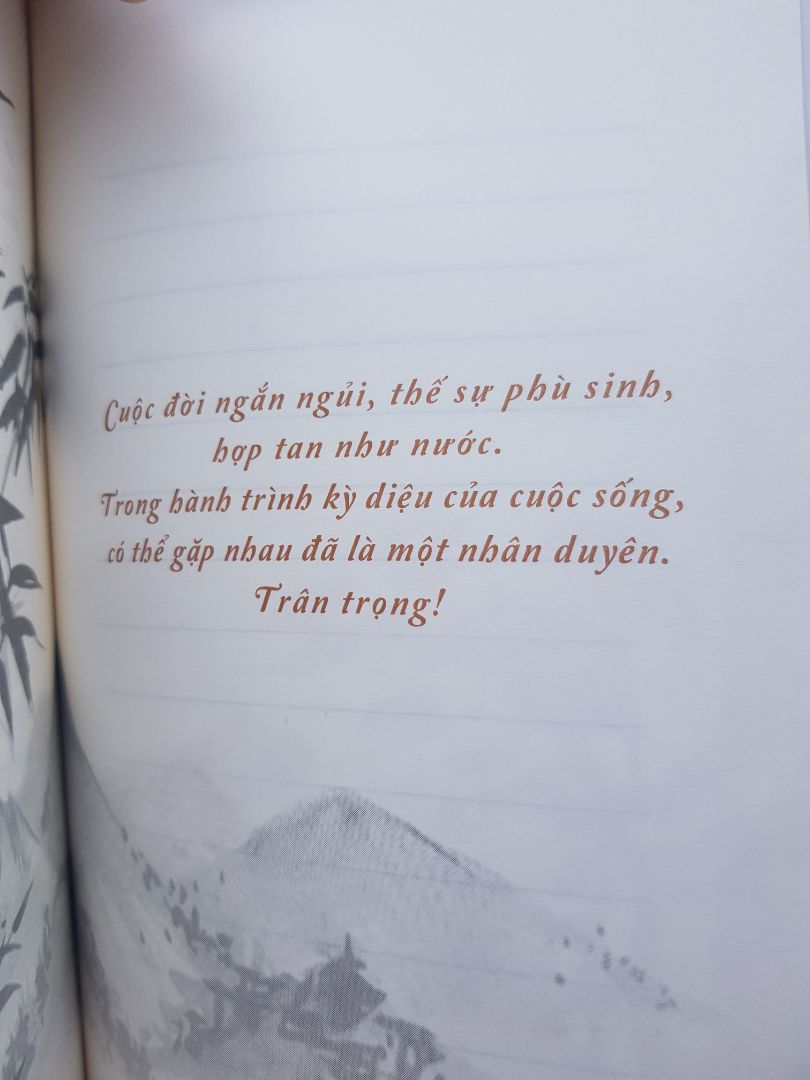 Cuộc đời ngắn ngủi, thế sự phù sinh,
hợp tan như nước.
Trong hành trình kỳ diệu của cuộc sống,
có thể gặp nhau đã là một nhân duyên.
Trân trọng!